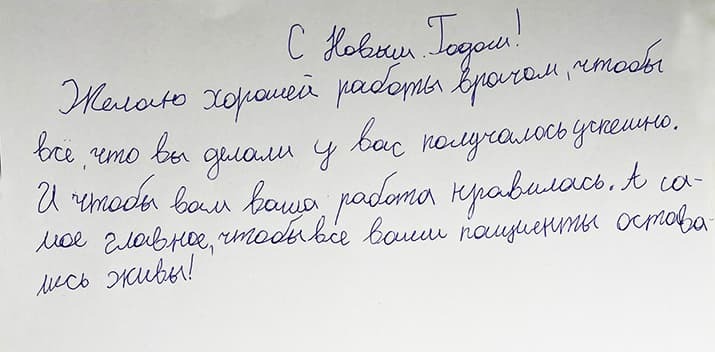 С Новым Годом!
Желаю хорошей работы врачом, чтобы
всё, что вы делали у вас получалось успешно.
И чтобы вам ваша работа нравилась. А са-
мое главное, чтобы все ваши пациенты остава-
лись живы!